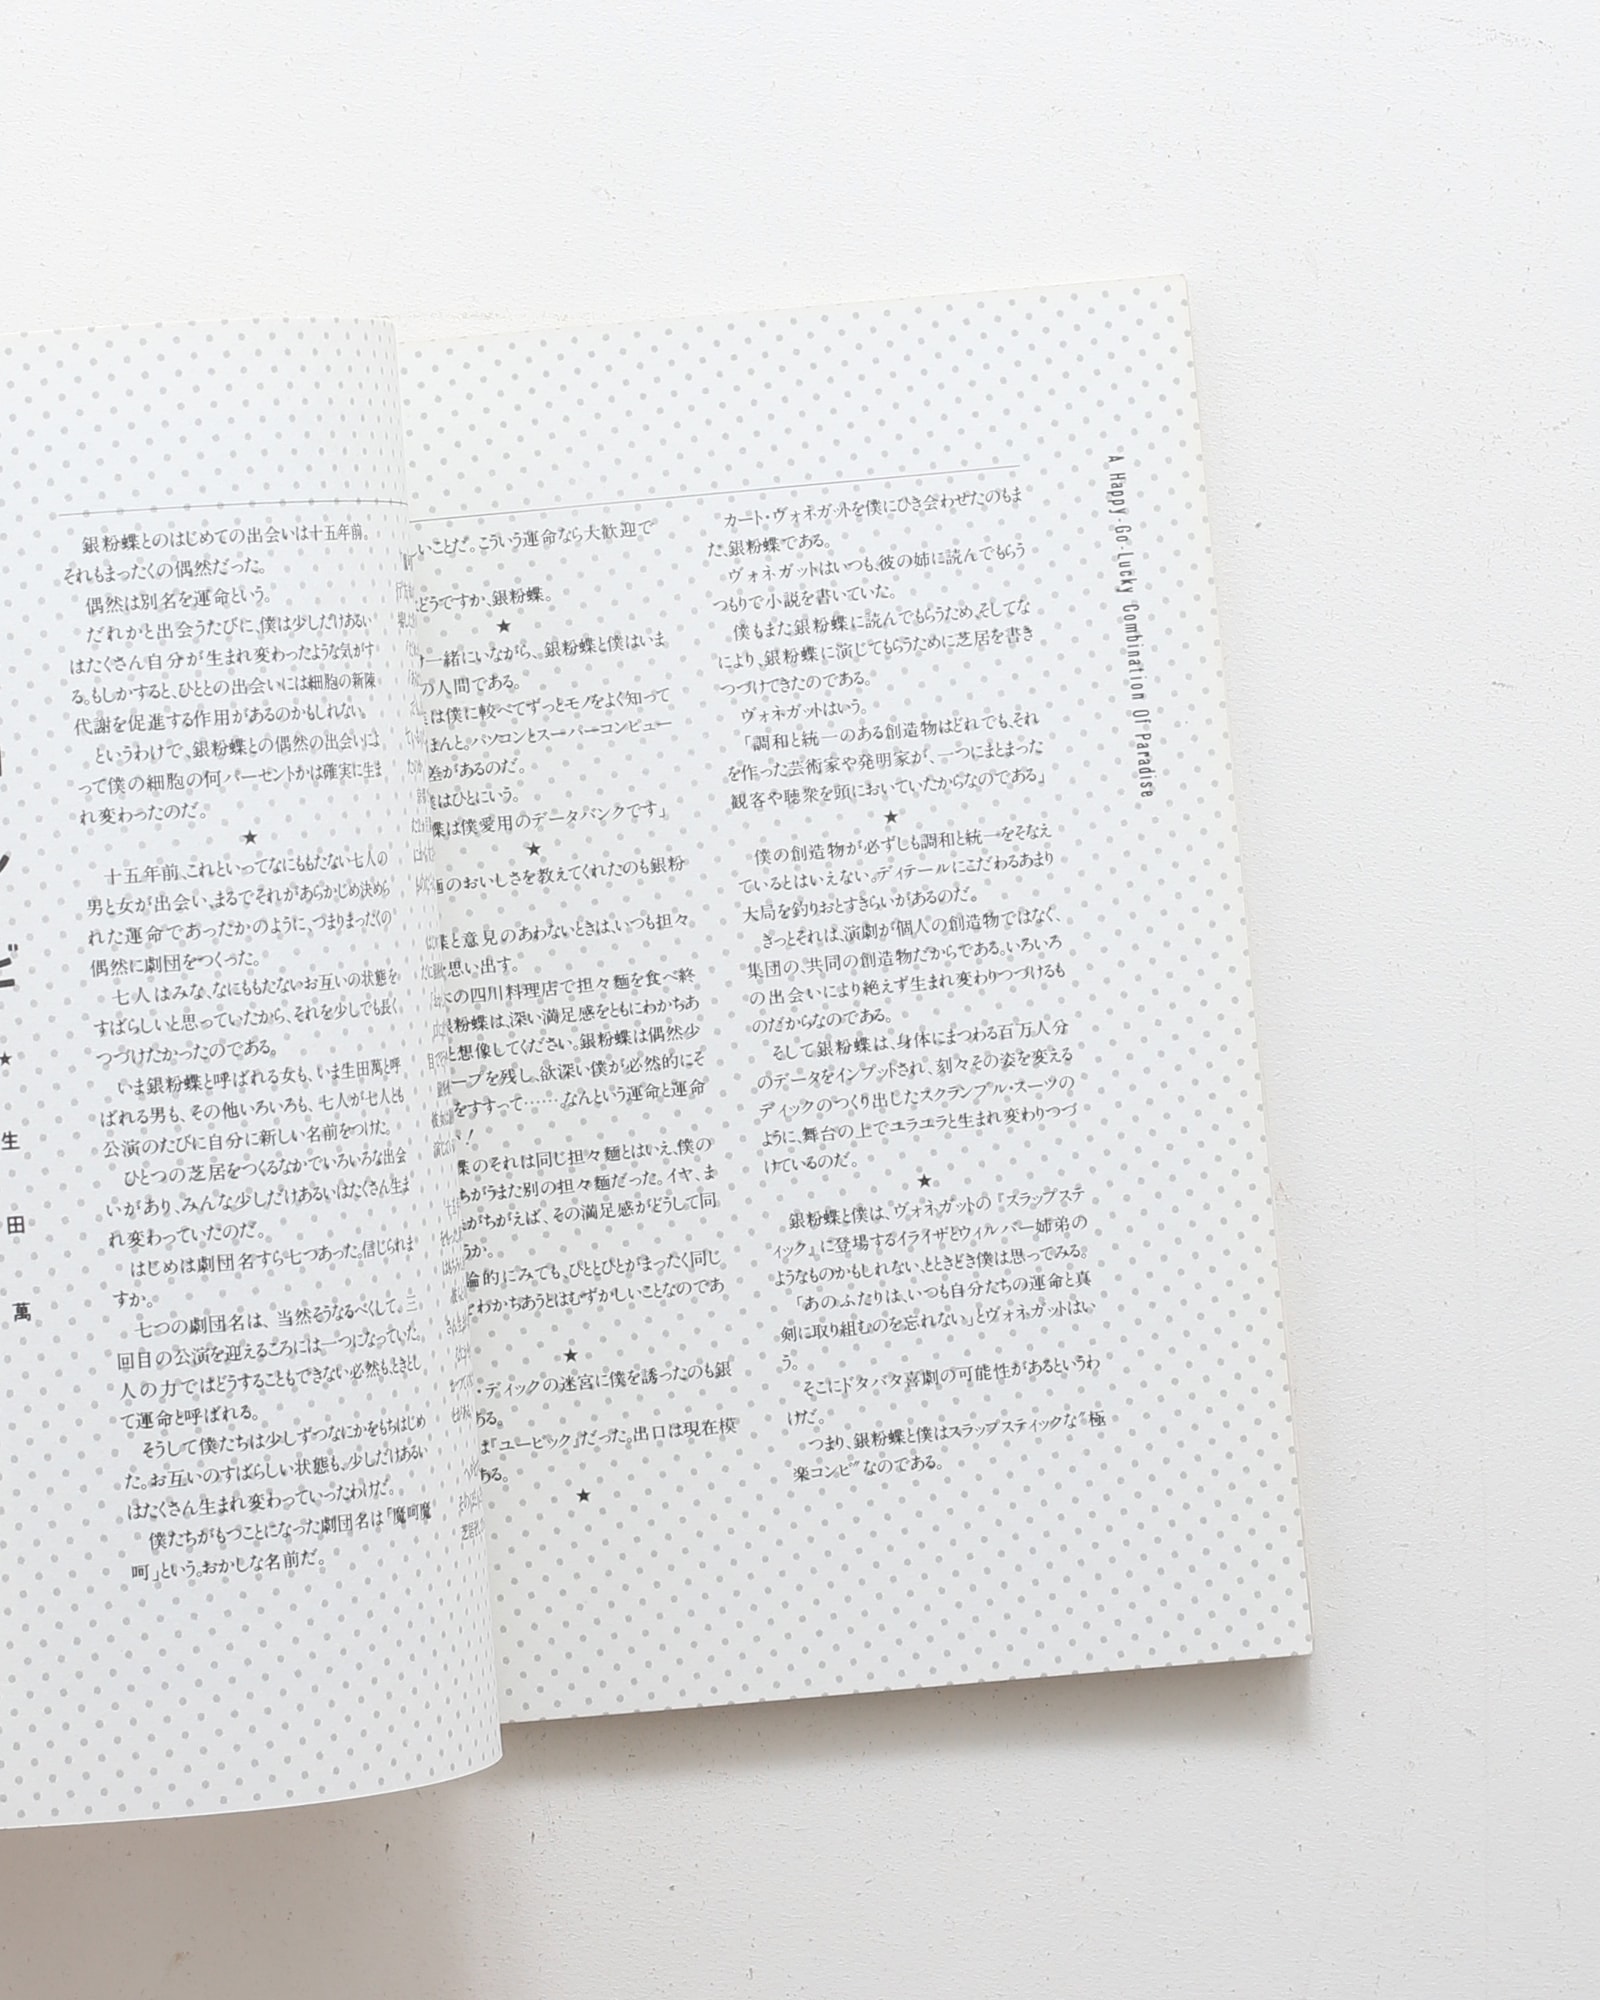 生田萬
銀粉蝶とのはじめての出会いは十五年前。
それもまったくの偶然だった。
偶然は別名を運命という。
だれかと出会うたびに、僕は少しだけあるい
はたくさん自分が生まれ変わったような気がす
る。もしかすると、ひととの出会いには細胞の新陳
代謝を促進する作用があるのかもしれない。
というわけで、銀粉蝶との偶然の出会いによ
って僕の細胞の何パーセントかは確実に生ま
れ変わったのだ。
★
十五年前、これといってなにももたない七人の
男と女が出会い、まるでそれがあらかじめ決めら
れた運命であったかのように、つまりまったくの
偶然に劇団をつくった。
七人はみな、なにももたないお互いの状態を
すばらしいと思っていたから、それを少しでも長く
つづけたかったのである。
いま銀粉蝶と呼ばれる女も、いま生田萬と呼
ばれる男も、その他いろいろも、七人が七人とも
公演のたびに自分に新しい名前をつけた。
ひとつの芝居をつくるなかでいろいろな出会
いがあり、みんな少しだけあるいはたくさん生ま
れ変わっていたのだ。
はじめは劇団名すら七つあった。信じられま
すか。
七つの劇団名は、当然そうなるべくして、三
回目の公演を迎えるころには一つになっていた。
人の力ではどうすることもできない必然も、ときとし
て運命と呼ばれる。
そうして僕たちは少しずつなにかをもちはじめ
た。お互いのすばらしい状態も、少しだけあるい
はたくさん生まれ変わっていったわけだ。
僕たちがもつことになった劇団名は「魔呵魔
呵」という。おかしな名前だ。
いことだ。こういう運命なら大歓迎で
どうですか、銀粉蝶。
★
一緒にいながら、銀粉蝶と僕はいま
つの人間である。
は僕に較べてずっとモノをよく知って
ほんと。パソコンとスーパーコンピュー
差があるのだ。
はひとにいう。
蝶は僕愛用のデータバンクです」
★
麺のおいしさを教えてくれたのも銀粉
蝶と意見のあわないときは、いつも担々
を思い出す。
木の四川料理店で担々麺を食べ終
銀粉蝶は、深い満足感をともにわかちあ
と想像してください。銀粉蝶は偶然少
ープを残し、欲深い僕が必然的にそ
をすすって……なんという運命と運命
！
蝶のそれは同じ担々麺とはいえ、僕の
ちがうまた別の担々麺だった。イヤ、ま
がちがえば、その満足感がどうして同
うか。
論的にみても、ひととひとがまったく同じ
とわかちあうとはむずかしいことなのであ
★
・ディックの迷宮に僕を誘ったのも銀
ある。
は『ユービック』だった。出口は現在模
ある。
★
カート・ヴォネガットを僕にひき会わせたのもま
た、銀粉蝶である。
ヴォネガットはいつも、彼の姉に読んでもらう
つもりで小説を書いていた。
僕もまた銀粉蝶に読んでもらうため、そしてな
により、銀粉蝶に演じてもらうために芝居を書き
つづけてきたのである。
ヴォネガットはいう。
「調和と統一のある創造物はどれでも、それ
を作った芸術家や発明家が、一つにまとまった
観客や聴衆を頭においていたからなのである」
★
僕の創造物が必ずしも調和と統一をそなえ
ているとはいえない。ディテールにこだわるあまり
大局を釣りおとすきらいがあるのだ。
きっとそれは、演劇が個人の創造物ではなく、
集団の、共同の創造物だからである。いろいろ
の出会いにより絶えず生まれ変わりつづけるも
のだからなのである。
そして銀粉蝶は、身体にまつわる百万人分
のデータをインプットされ、刻々その姿を変える
ディックのつくり出したスクランブル・スーツの
ように、舞台の上でユラユラと生まれ変わりつづ
けているのだ。
★
銀粉蝶と僕は、ヴォネガットの『スラップステ
ィック』に登場するイライザとウィルバー姉弟の
ようなものかもしれない、とときどき僕は思ってみる。
「あのふたりは、いつも自分たちの運命と真
剣に取り組むのを忘れない」とヴォネガットはい
う。
そこにドタバタ喜劇の可能性があるというわ
けだ。
つまり、銀粉蝶と僕はスラップスティックな〝極
楽コンビ〟なのである。
A Happy-Go-Lucky Combination Of Paradise